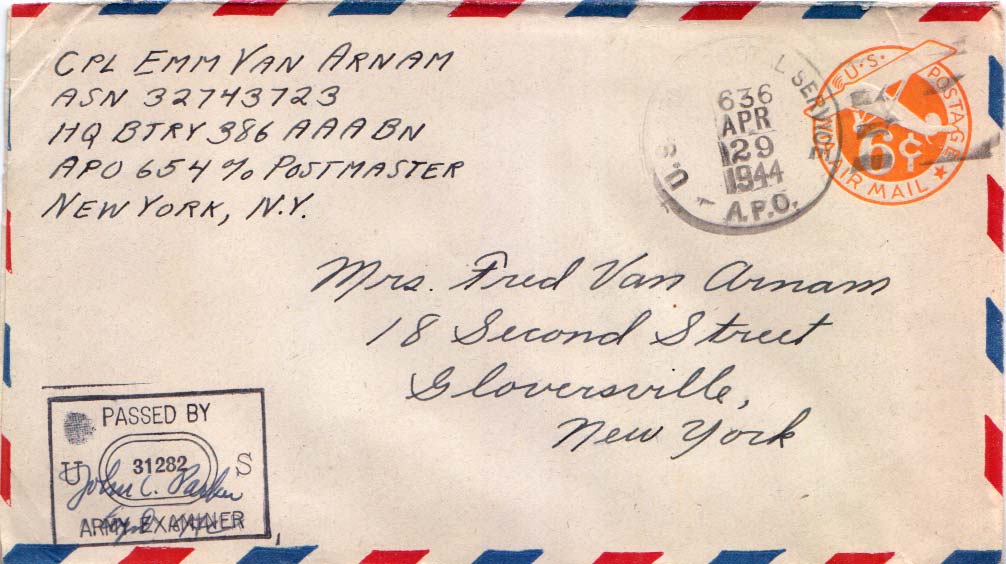 CPL EMM VAN ARNAM
ASN 32743723
HQ BTRY 386 AAA BN
APO 654 % POSTMASTER
NEW YORK, N.Y.
L SERVICE
636
APR
29
1944
A.P.O.
U.S.
U.S. POSTAGE
6¢
AIR MAIL
Mrs. Fred Van Arnam
18 Second Street
Gloversville,
New York
PASSED BY
U 31282 S
John C. Parker
ARMY EXAMINER